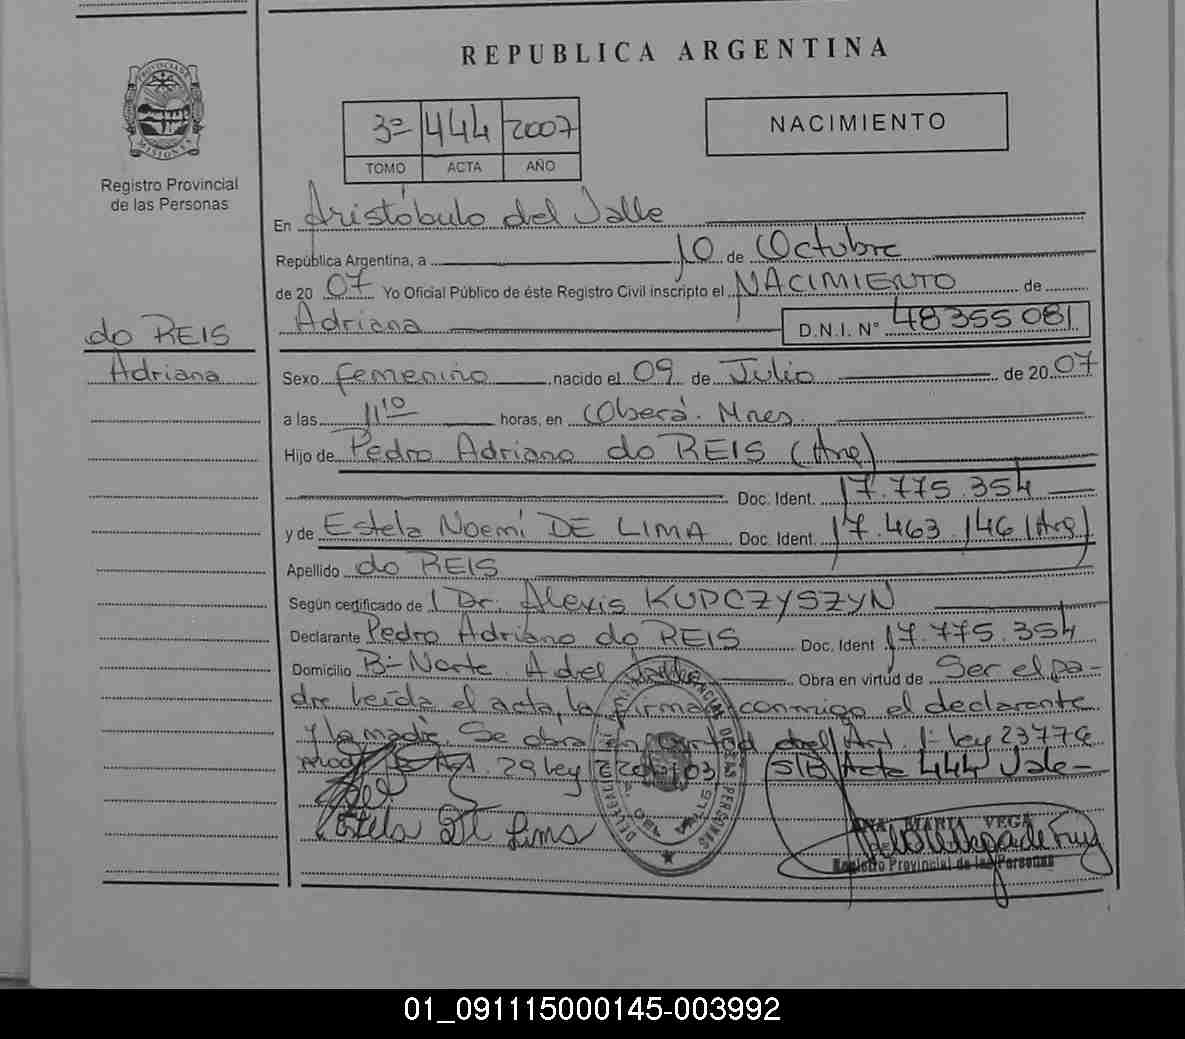 REPUBLICA ARGENTINA
PROVINCIA DE MISIONES
Registro Provincial
de las Personas
3º 444 2007
TOMO ACTA AÑO
NACIMIENTO
En Aristóbulo del Valle
República Argentina, a 10 de Octubre
de 20 07 Yo Oficial Público de éste Registro Civil inscripto el NACIMIENTO de
Adriana D.N.I. Nº 48355081
do REIS
Adriana
Sexo femenino nacido el 09 de Julio de 20 07
a las 11 10 horas, en Oberá. Mnes.
Hijo de Pedro Adriano do REIS (Arg)
Doc. Ident. 17.775.354
y de Estela Noemí DE LIMA Doc. Ident. 17.463.146 (Arg)
Apellido do REIS
Según certificado de Dr. Alexis KUPCZYSZYN
Declarante Pedro Adriano do REIS Doc. Ident 17.775.354
Domicilio Bº Norte. A del Valle Obra en virtud de Ser el pa-
dre leída el acta, la firma conmigo el declarante
y la madre. Se obra en virtud del Art. 1º ley 23776
Art. 29 ley S/B Acta 444 Vale-
Estela De Lima
ANA MARIA VEGA
Registro Provincial de las Personas
01_091115000145-003992